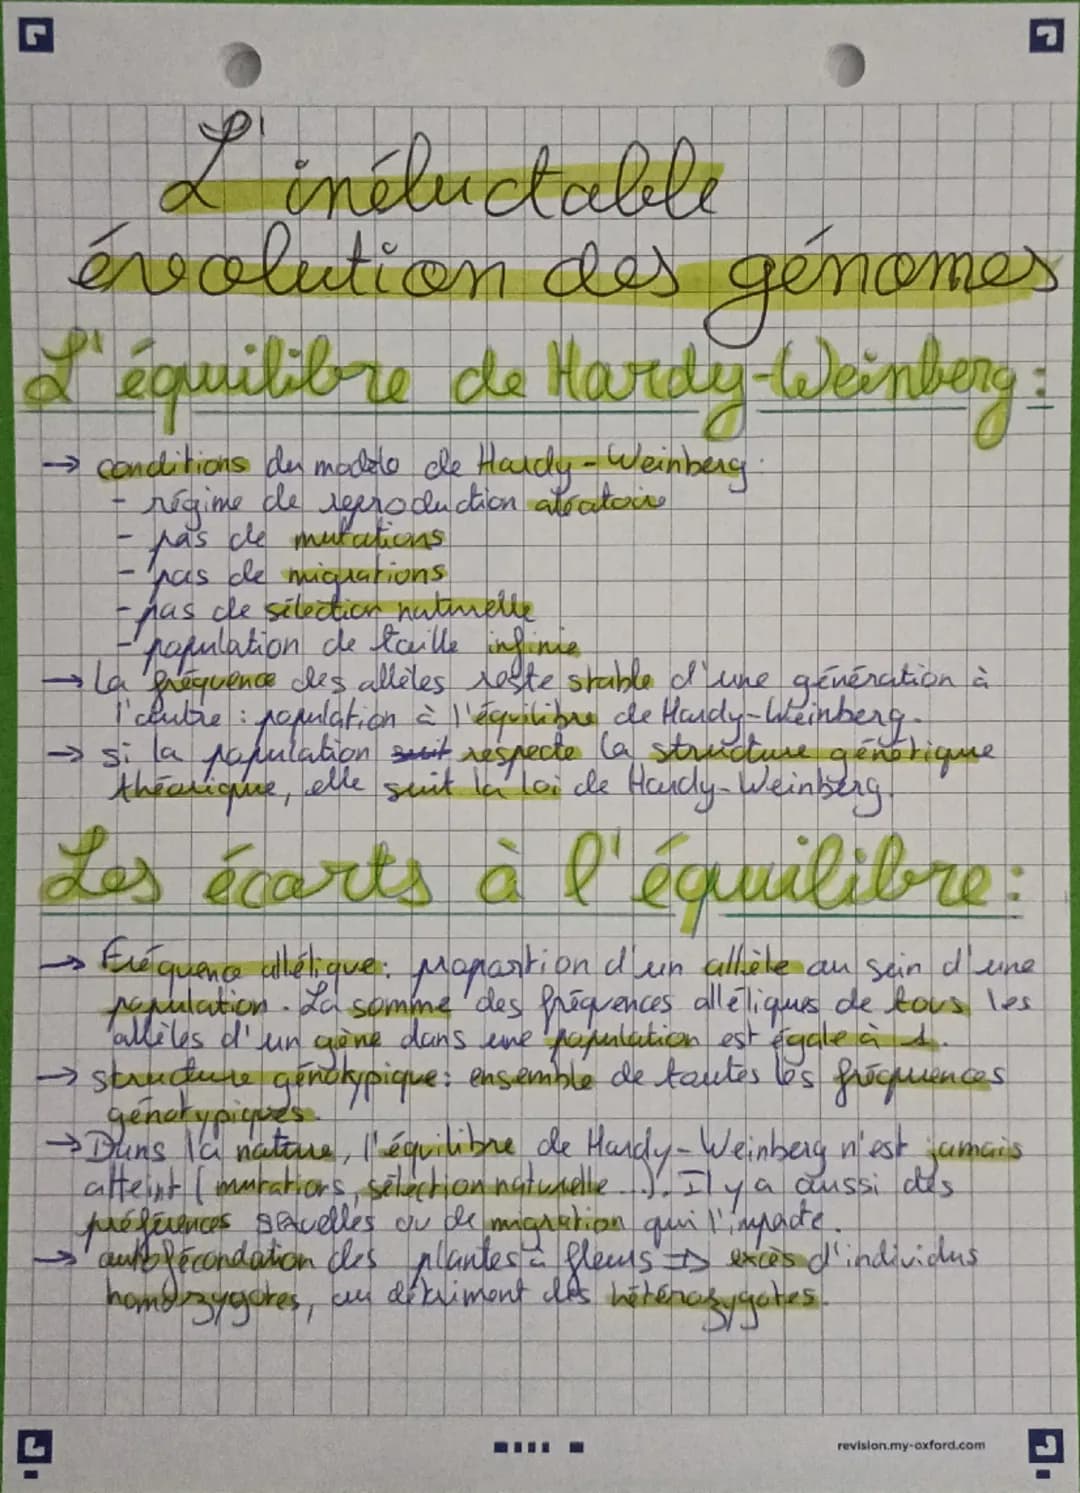 L'inéluctable
évolution des génomes
L'équilibre de Hardy-Weinberg :
→ conditions du modèle de Hardy-Weinberg :
- régime de reproduction aléatoire
- pas de mutations
- pas de migrations
- pas de sélection naturelle
- population de taille infinie
→ La fréquence des allèles reste stable d'une génération à
l'autre : population à l'équilibre de Hardy-Weinberg.
→ si la population suit respecte la structure génétique
théorique, elle suit la loi de Hardy-Weinberg.
Les écarts à l'équilibre :
→ Fréquence allélique : proportion d'un allèle au sein d'une
population. La somme des fréquences alléliques de tous les
allèles d'un gène dans une population est égale à 1.
→ structure génotypique : ensemble de toutes les fréquences
génotypiques.
→ Dans la nature, l'équilibre de Hardy-Weinberg n'est jamais
atteint (mutations, sélection naturelle...). Il y a aussi des
préférences sexuelles ou de migration qui l'impacte.
→ autofécondation des plantes à fleurs ⇒ excès d'individus
homozygotes, au détriment des hétérozygotes.
revision.my-oxford.com